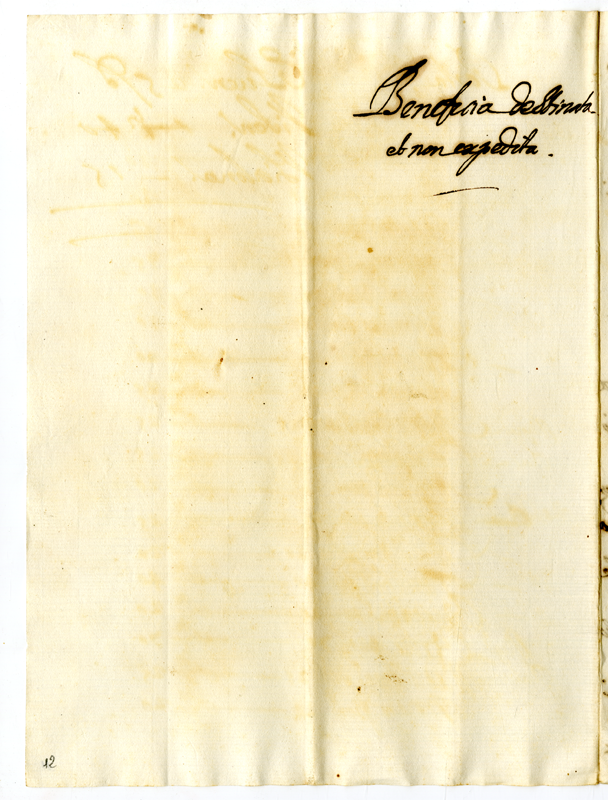 Beneficia destinata
et non expedita.
12